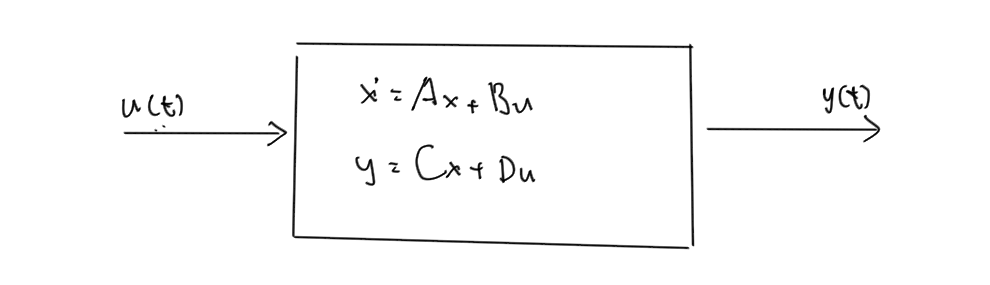 u(t)
ẋ = Ax + Bu
y = Cx + Du
y(t)